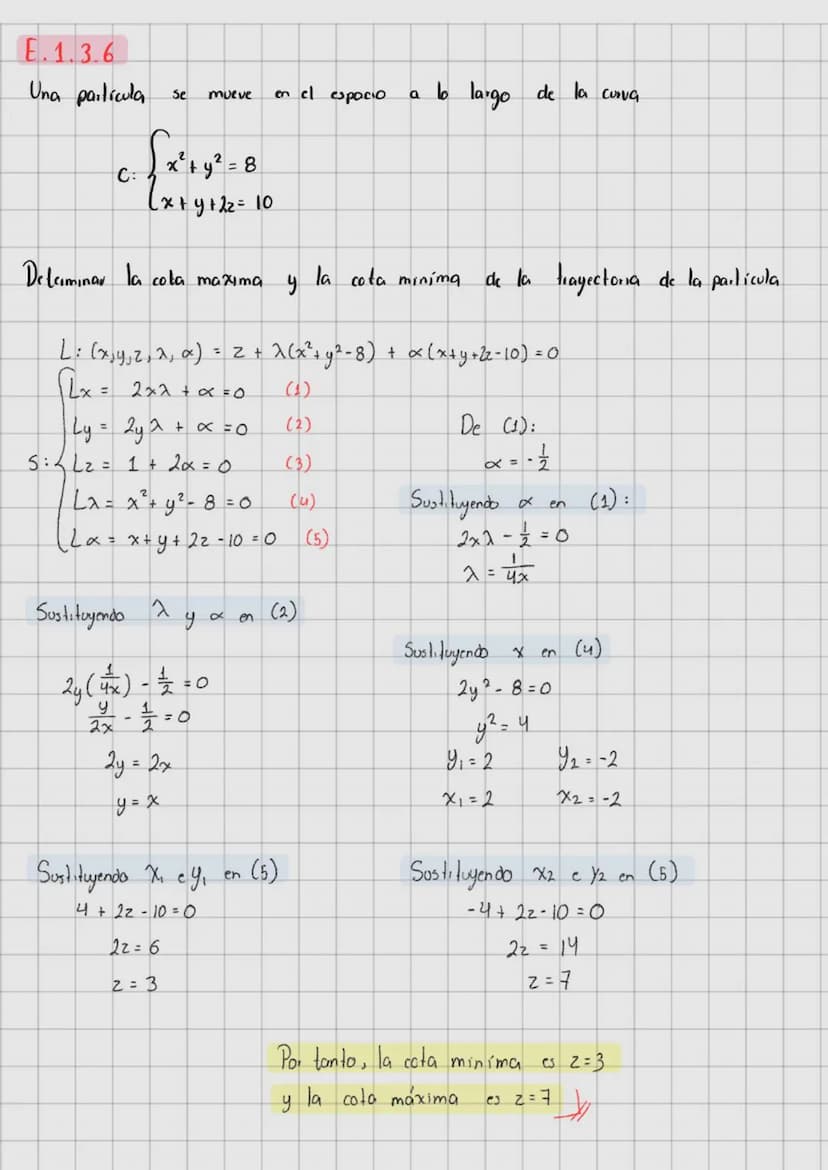 E.1.3.6
Una partícula se mueve en el espacio a lo largo de la curva
C: { x² + y² = 8
x + y + 2z = 10
Determinar la cota maxima y la cota mínima de la trayectoria de la partícula
L: (x,y,z,λ,α) = z + λ(x² + y² - 8) + α(x+y+2z-10) = 0
S: { Lx = 2xλ + α = 0 (1)
Ly = 2yλ + α = 0 (2)
Lz = 1 + 2α = 0 (3)
Lλ = x² + y² - 8 = 0 (4)
Lα = x + y + 2z - 10 = 0 (5)
De (1):
α = - 1/2
Sustituyendo α en (1):
2xλ - 1/2 = 0
λ = 1/4x
Sustituyendo λ y α en (2)
2y(1/4x) - 1/2 = 0
y/2x - 1/2 = 0
2y = 2x
y = x
Sustituyendo x en (4)
2y² - 8 = 0
y² = 4
y₁ = 2 y₂ = -2
x₁ = 2 x₂ = -2
Sustituyendo x₁ e y₁ en (5)
4 + 2z - 10 = 0
2z = 6
z = 3
Sustituyendo x₂ e y₂ en (5)
-4 + 2z - 10 = 0
2z = 14
z = 7
Por tanto, la cota mínima es z=3
y la cota máxima es z=7